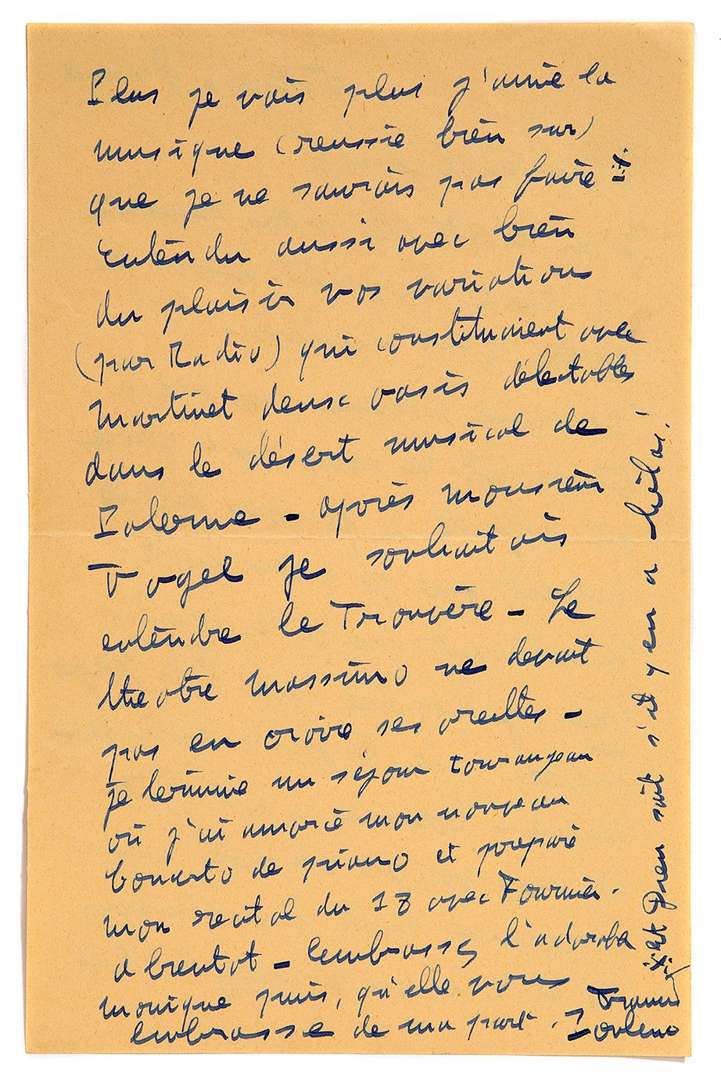 Plus je vais plus j'aime la
musique (reussie bien sur)
que je ne saurais pas faire
Entendu aussi avec bien
du plaisir vos variations
(par Radio) qui constituaient avec
Martinet deux oasis délectables
dans le désert musical de
Palerme - après monsieur
Vogel je souhaitais
entendre le Trouvère - Le
theatre Massimo ne devait
pas en croire ses oreilles -
je termine un séjour tourangeau
où j'ai amorcé mon nouveau
Concerto de piano et preparé
mon recital du 13 avec Fournier.
a bientot - embrassez l'adorable
Monique puis, qu'elle vous
embrasse de ma part. Francis
Poulenc
et Dieu sait s'il y en a hélas!